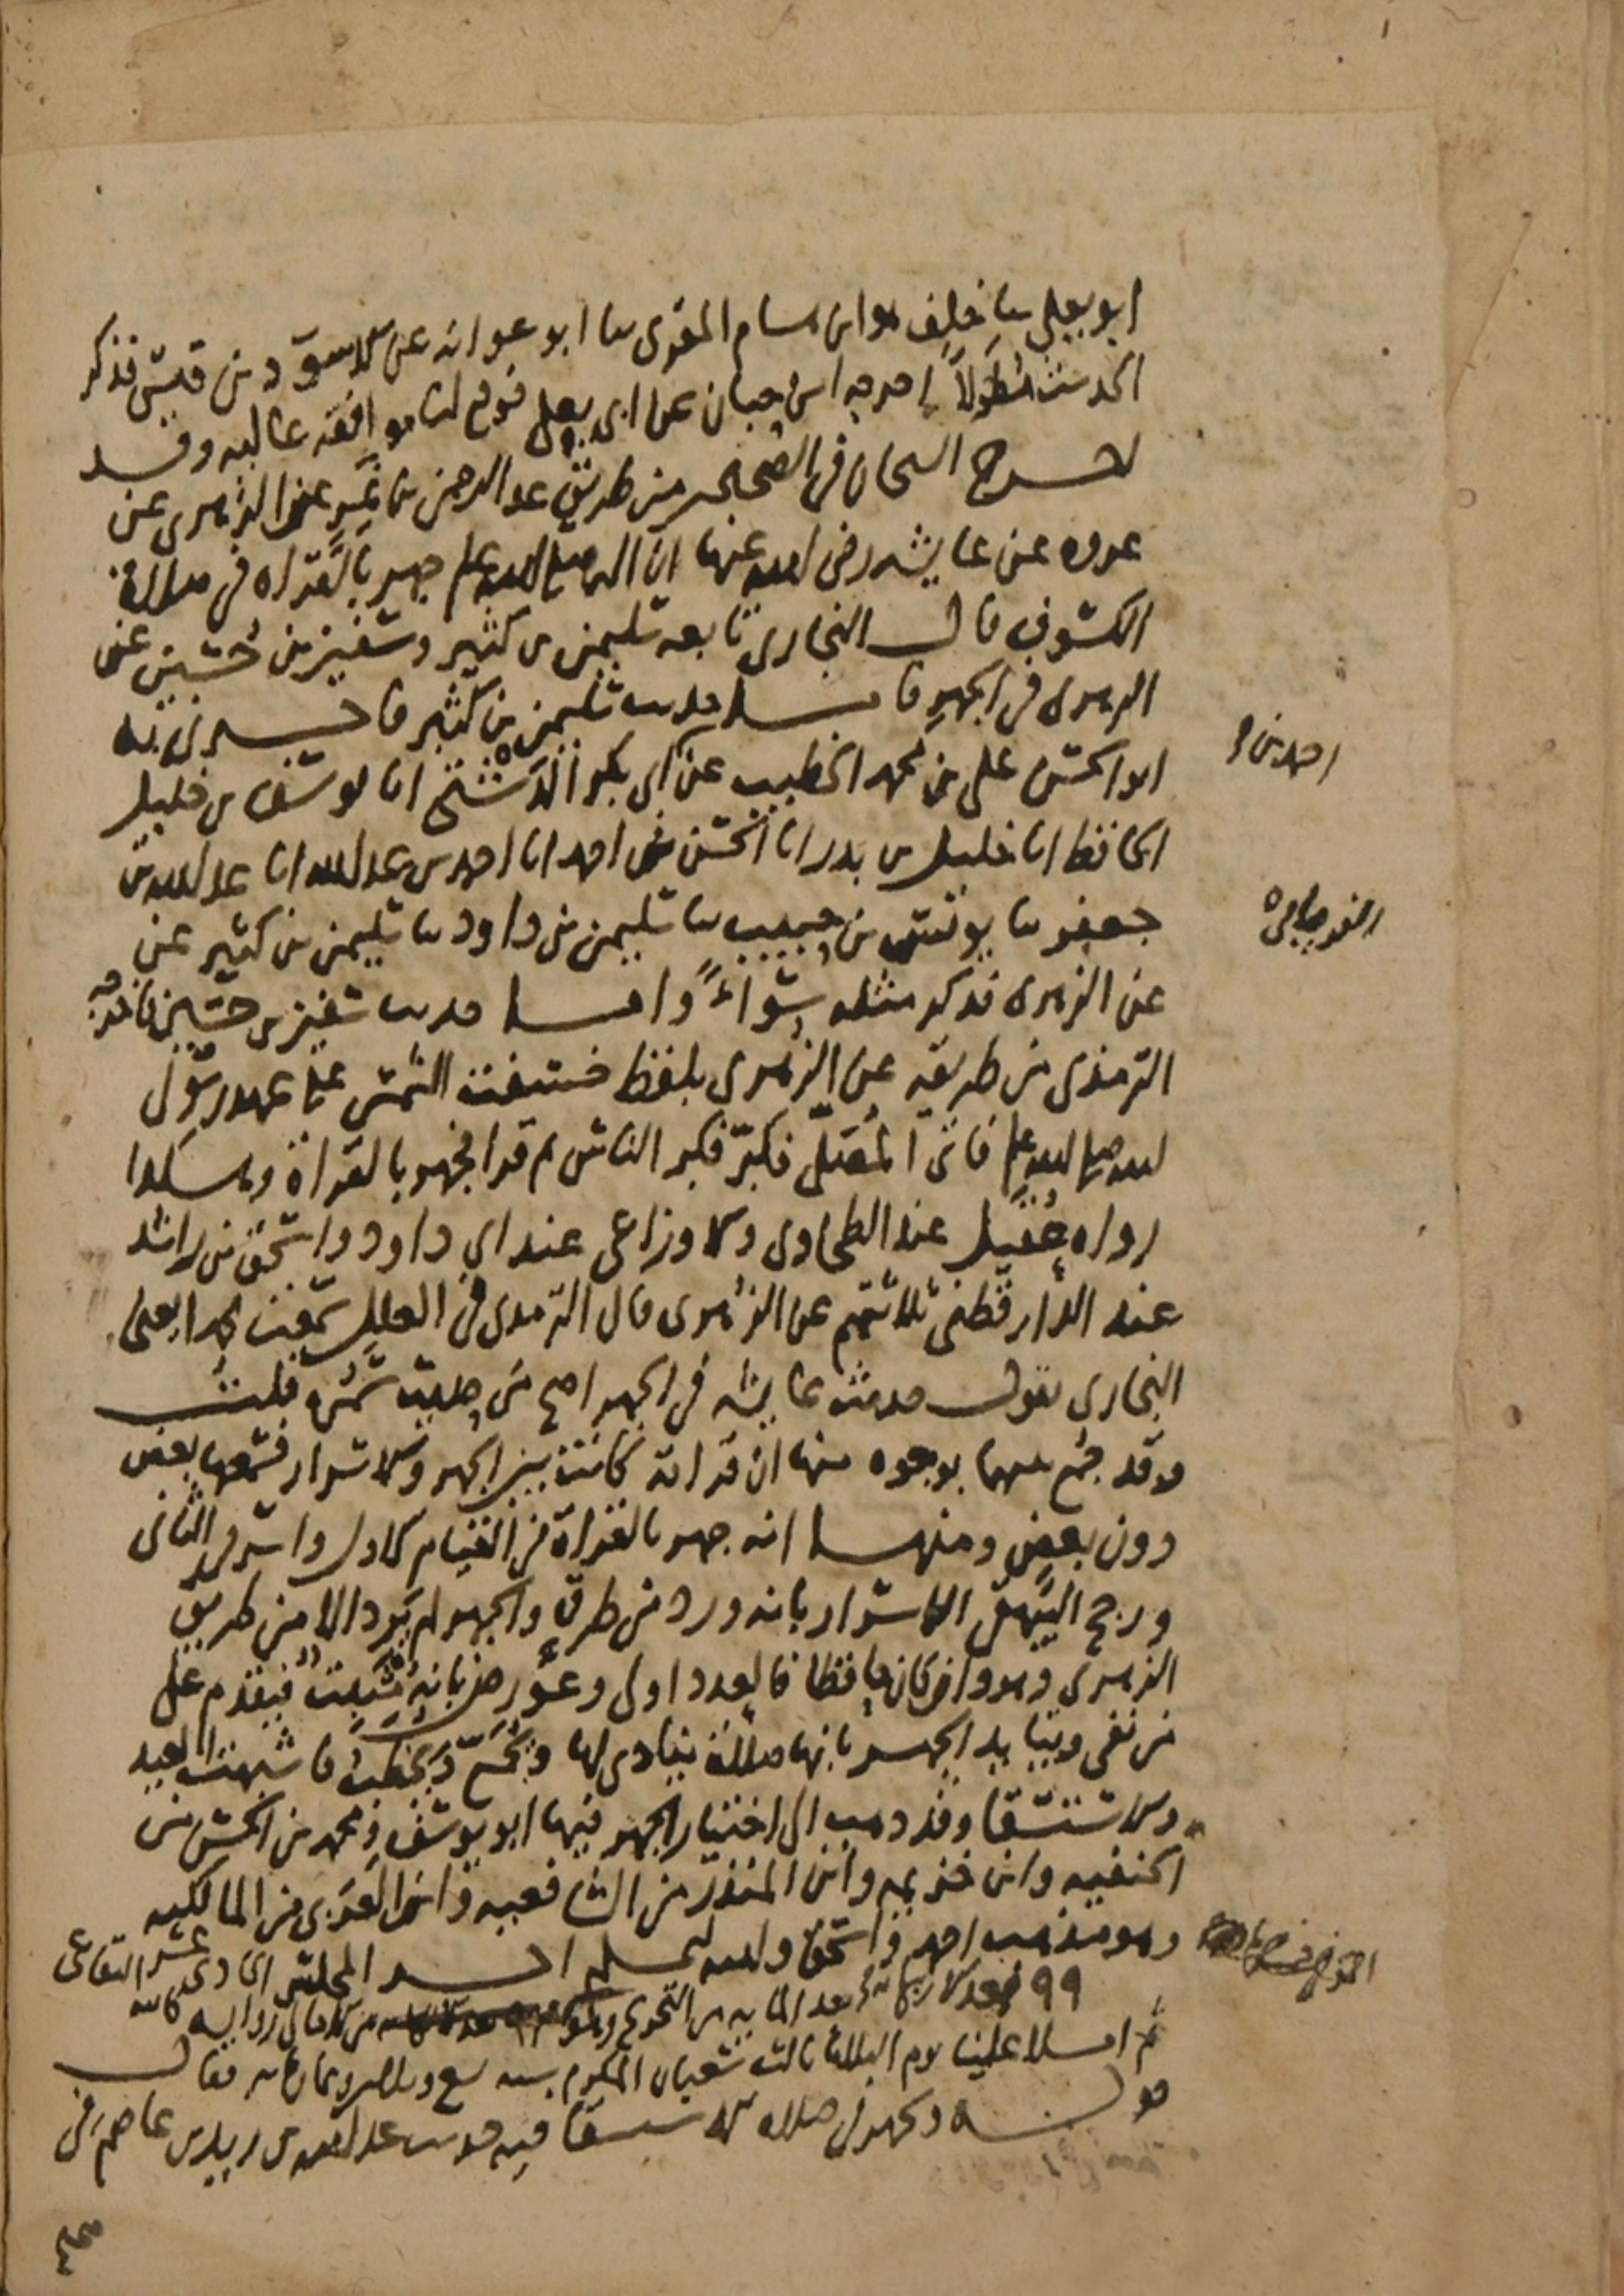 ابو يعلى ثنا خلف هو ابن هشام المقرى ثنا ابو عوانه عن الاسود بن قيس فذكر
الحديث مطولاً اخرجه ابن حبان عن ابى يعلى فوقع لنا موافقه عاليه وقد
اخرج الشيخان فى الصحيحين من طريق عبد الرحمن بن نمر عن الزهرى عن
عروه عن عايشه رضى الله عنها ان النبى صلى الله عليه وسلم جهر بالقراه فى صلاة
الكسوف قال البخارى تابعه سليمن بن كثير وسفين بن حسين عن
الزهرى فى الجهر فاما حديث سليمن بن كثير فاخبرنى به
ابو الحسن على بن محمد الخطيب عن ابى بكر الدشتى انا يوسف بن خليل
الحافظ انا خليل بن بدر انا الحسن بن احمد انا احمد بن عبد الله انا عبد الله بن
جعفر ثنا يونس بن حبيب ثنا سليمن بن داود ثنا سليمن بن كثير عن
عن الزهرى فذكر مثله سواءً واما حديث سفين بن حسين فاخرجه
الترمذى من طريقه عن الزهرى بلفظ خسفت الشمس على عهد رسول
الله صلى الله عليه وسلم فاتى المصلى فكبر فكبر الناس ثم قرا فجهر بالقراة وهكذا
رواه عقيل عند الطحاوى والاوزاعى عند ابى داود واسحق بن راشد
عند الدارقطنى ثلاثتهم عن الزهرى قال الترمذى فى العلل سمعت محمدا يعنى
البخارى يقول حديث عايشه فى الجهر اصح من حديث سمره قلت
وقد جمع بينهما بوجوه منها ان قراته كانت بين الجهر والاسرار فسمعها بعض
دون بعض ومنها انه جهر بالقراة فى القيام الاول واسر فى الثانى
ورجح البيهقى الاسرار بانه ورد من طرق والجهر لم يرد الا من طريق
الزهرى وهو وان كان حافظا فالعدد اولى وعورض بانه مثبت فيقدم على
من نفى ويتايد الجهر بانها صلاة ينادى لها ويجمع ويخطب فاشبهت العيد
والاستسقا وقد ذهب الى اختيار الجهر فيها ابو يوسف ومحمد بن الحسن من
الحنفيه وابن خزيمه وابن المنذر من الشافعيه وابن العربى من المالكيه
وهو مذهب احمد واسحق والله اعلم اخر المجلس الحادى عشر
٩٩ بعد الاربعمائة بعد المايه من التخريج
ثم املا علينا يوم الثلاثا ثالث شعبان المكرم سنه سبع وثلاثين وثمانمائه فقال
قوله ويجهر فى صلاه الاستسقا فيه حديث عبد الله بن زيد بن عاصم رضى